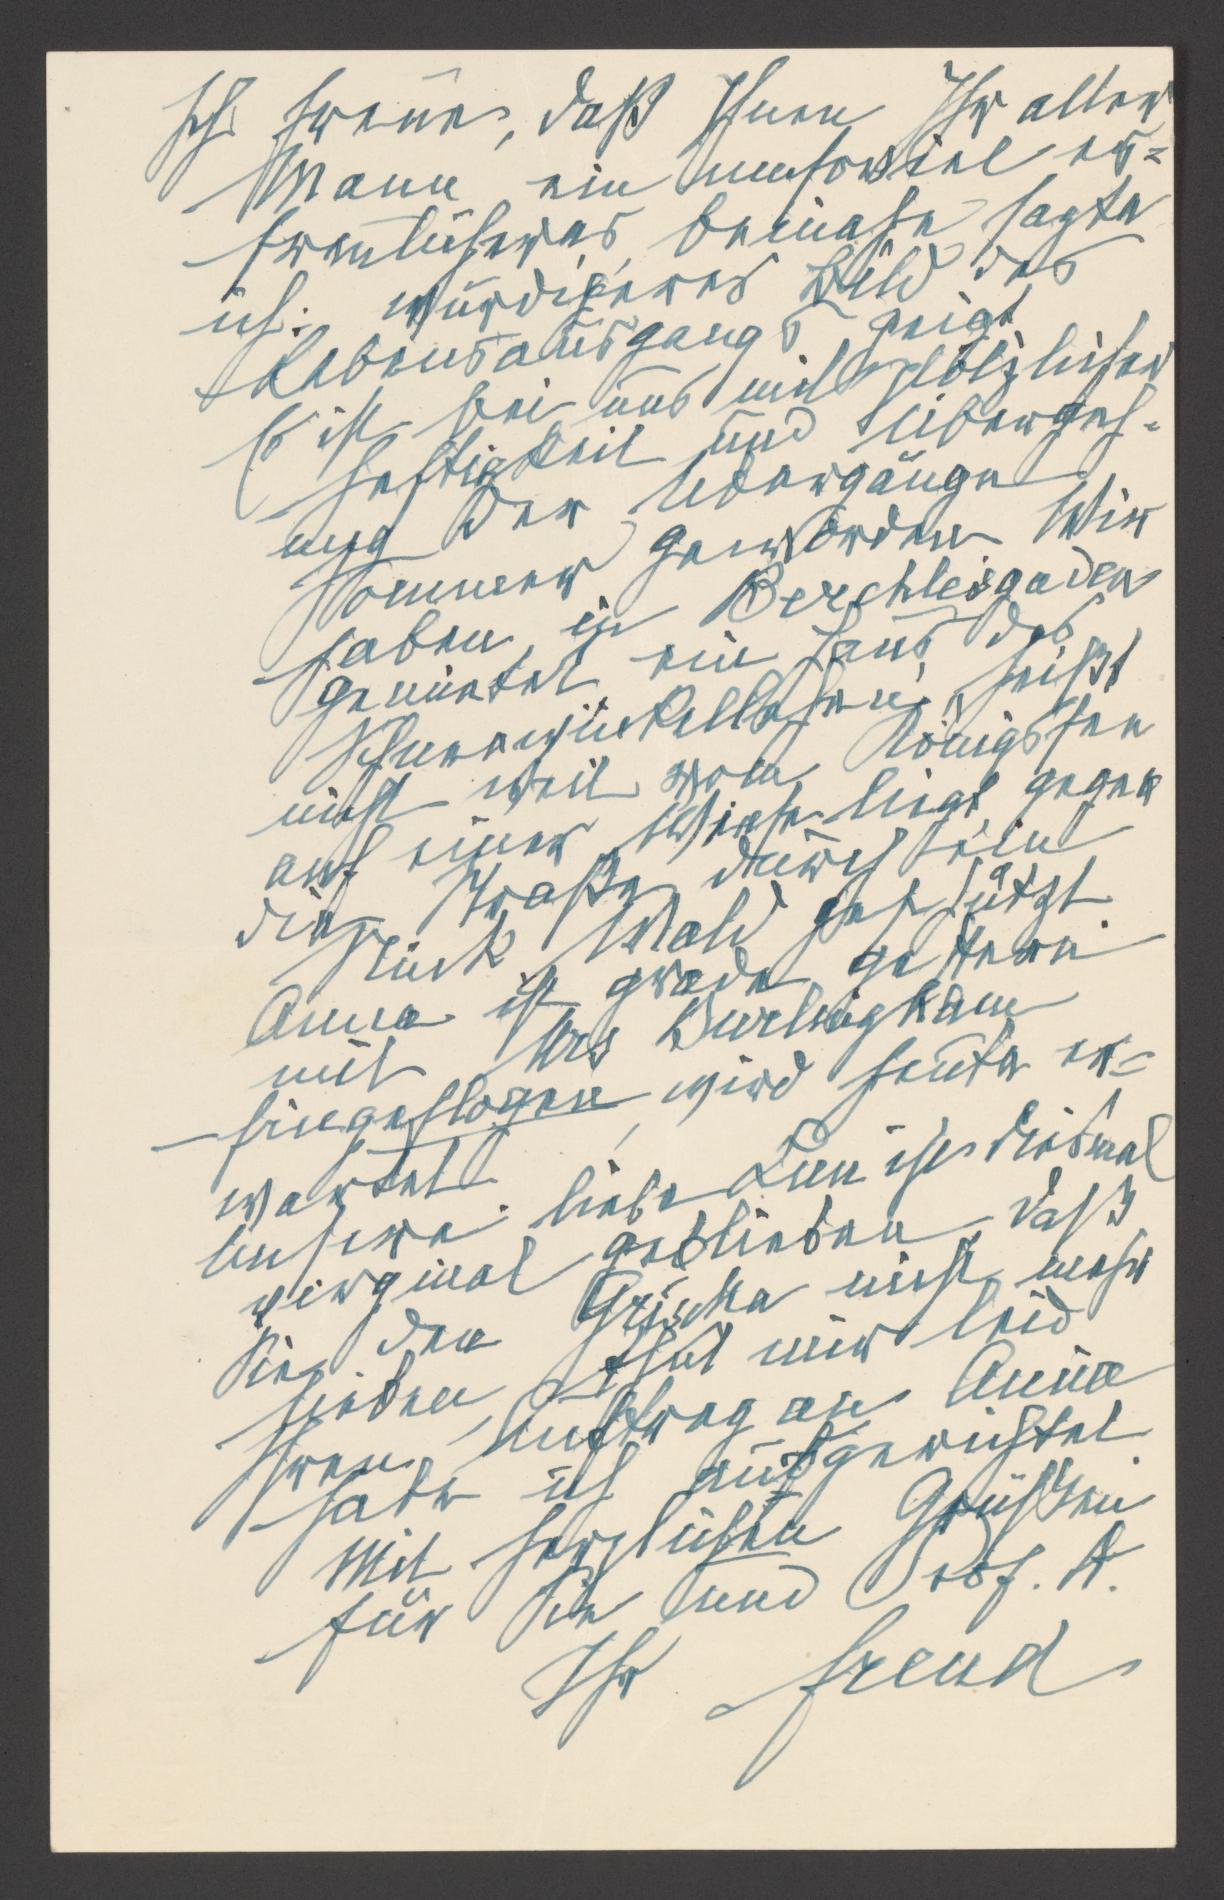 Ich freue, daß Ihnen Ihr alter
Mann ein um soviel er=
freulicheres, beinahe sagte
ich: würdigeres Bild des
Lebensausgangs zeigt
Es ist bei uns mit plötzlicher
Heftigkeit und Übergeh-
ung der Übergänge
Sommer geworden. Wir
haben in Berchtesgaden
gemietet, ein Haus das
Schneewinkellehen heißt
nicht weit vom Königssee
auf einer Wiese liegt, gegen
die Straße durch ein
Stück Wald geschützt.
Anna ist grade gestern
mit Mrs Burlingham
hingeflogen, wird heute er=
wartet.
Unsere liebe Lun ist diesmal
virginal geblieben, daß
Sie den Grischa nicht mehr
haben, thut mir leid
Ihren Auftrag an Anna
habe ich ausgerichtet.
Mit herzlichen Grüßen
für Sie und Prof. A.
Ihr Freud